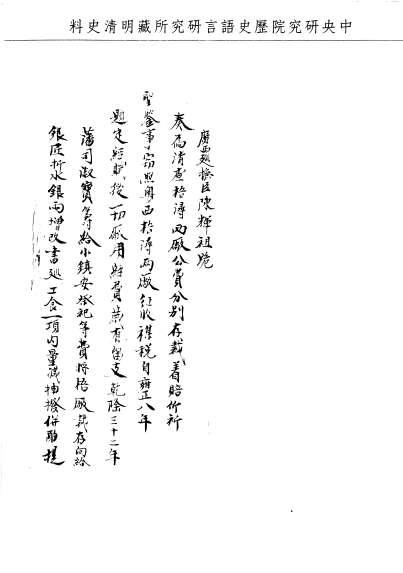 中央研究院歷史語言研究所藏明清史料
廣西巡撫臣陳輝祖跪
奏為清查梧潯兩廠公費分別存裁着賠仰祈
聖鑒事竊照粵西梧潯兩廠征收襍稅自雍正八年
題定經後一切廠用經費咸有留支乾隆三十二年
藩司淑寶籌給小鎮安祭祀等費將梧廠裁存向給
銀匠折水銀兩增改書巡工食一項內量減抽撥併